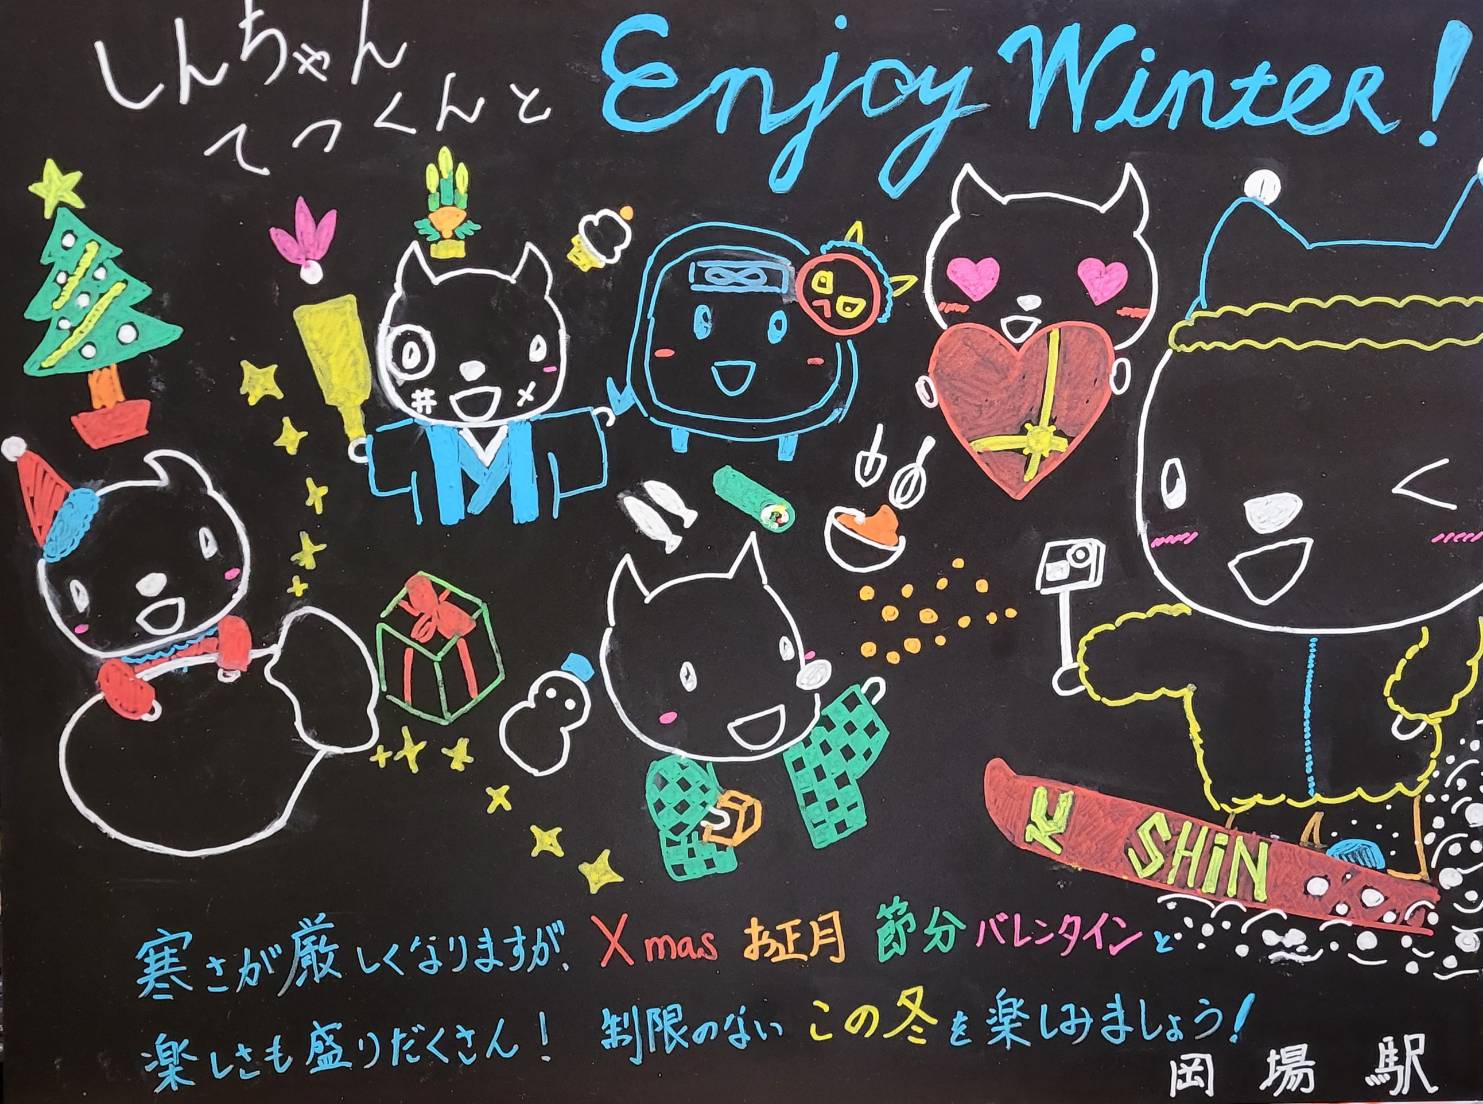 しんちゃん
てつくんと
Enjoy Winter!
SHiN
寒さが厳しくなりますが、Xmas お正月 節分 バレンタインと
楽しさも盛りだくさん! 制限のない この冬を楽しみましょう!
岡場駅